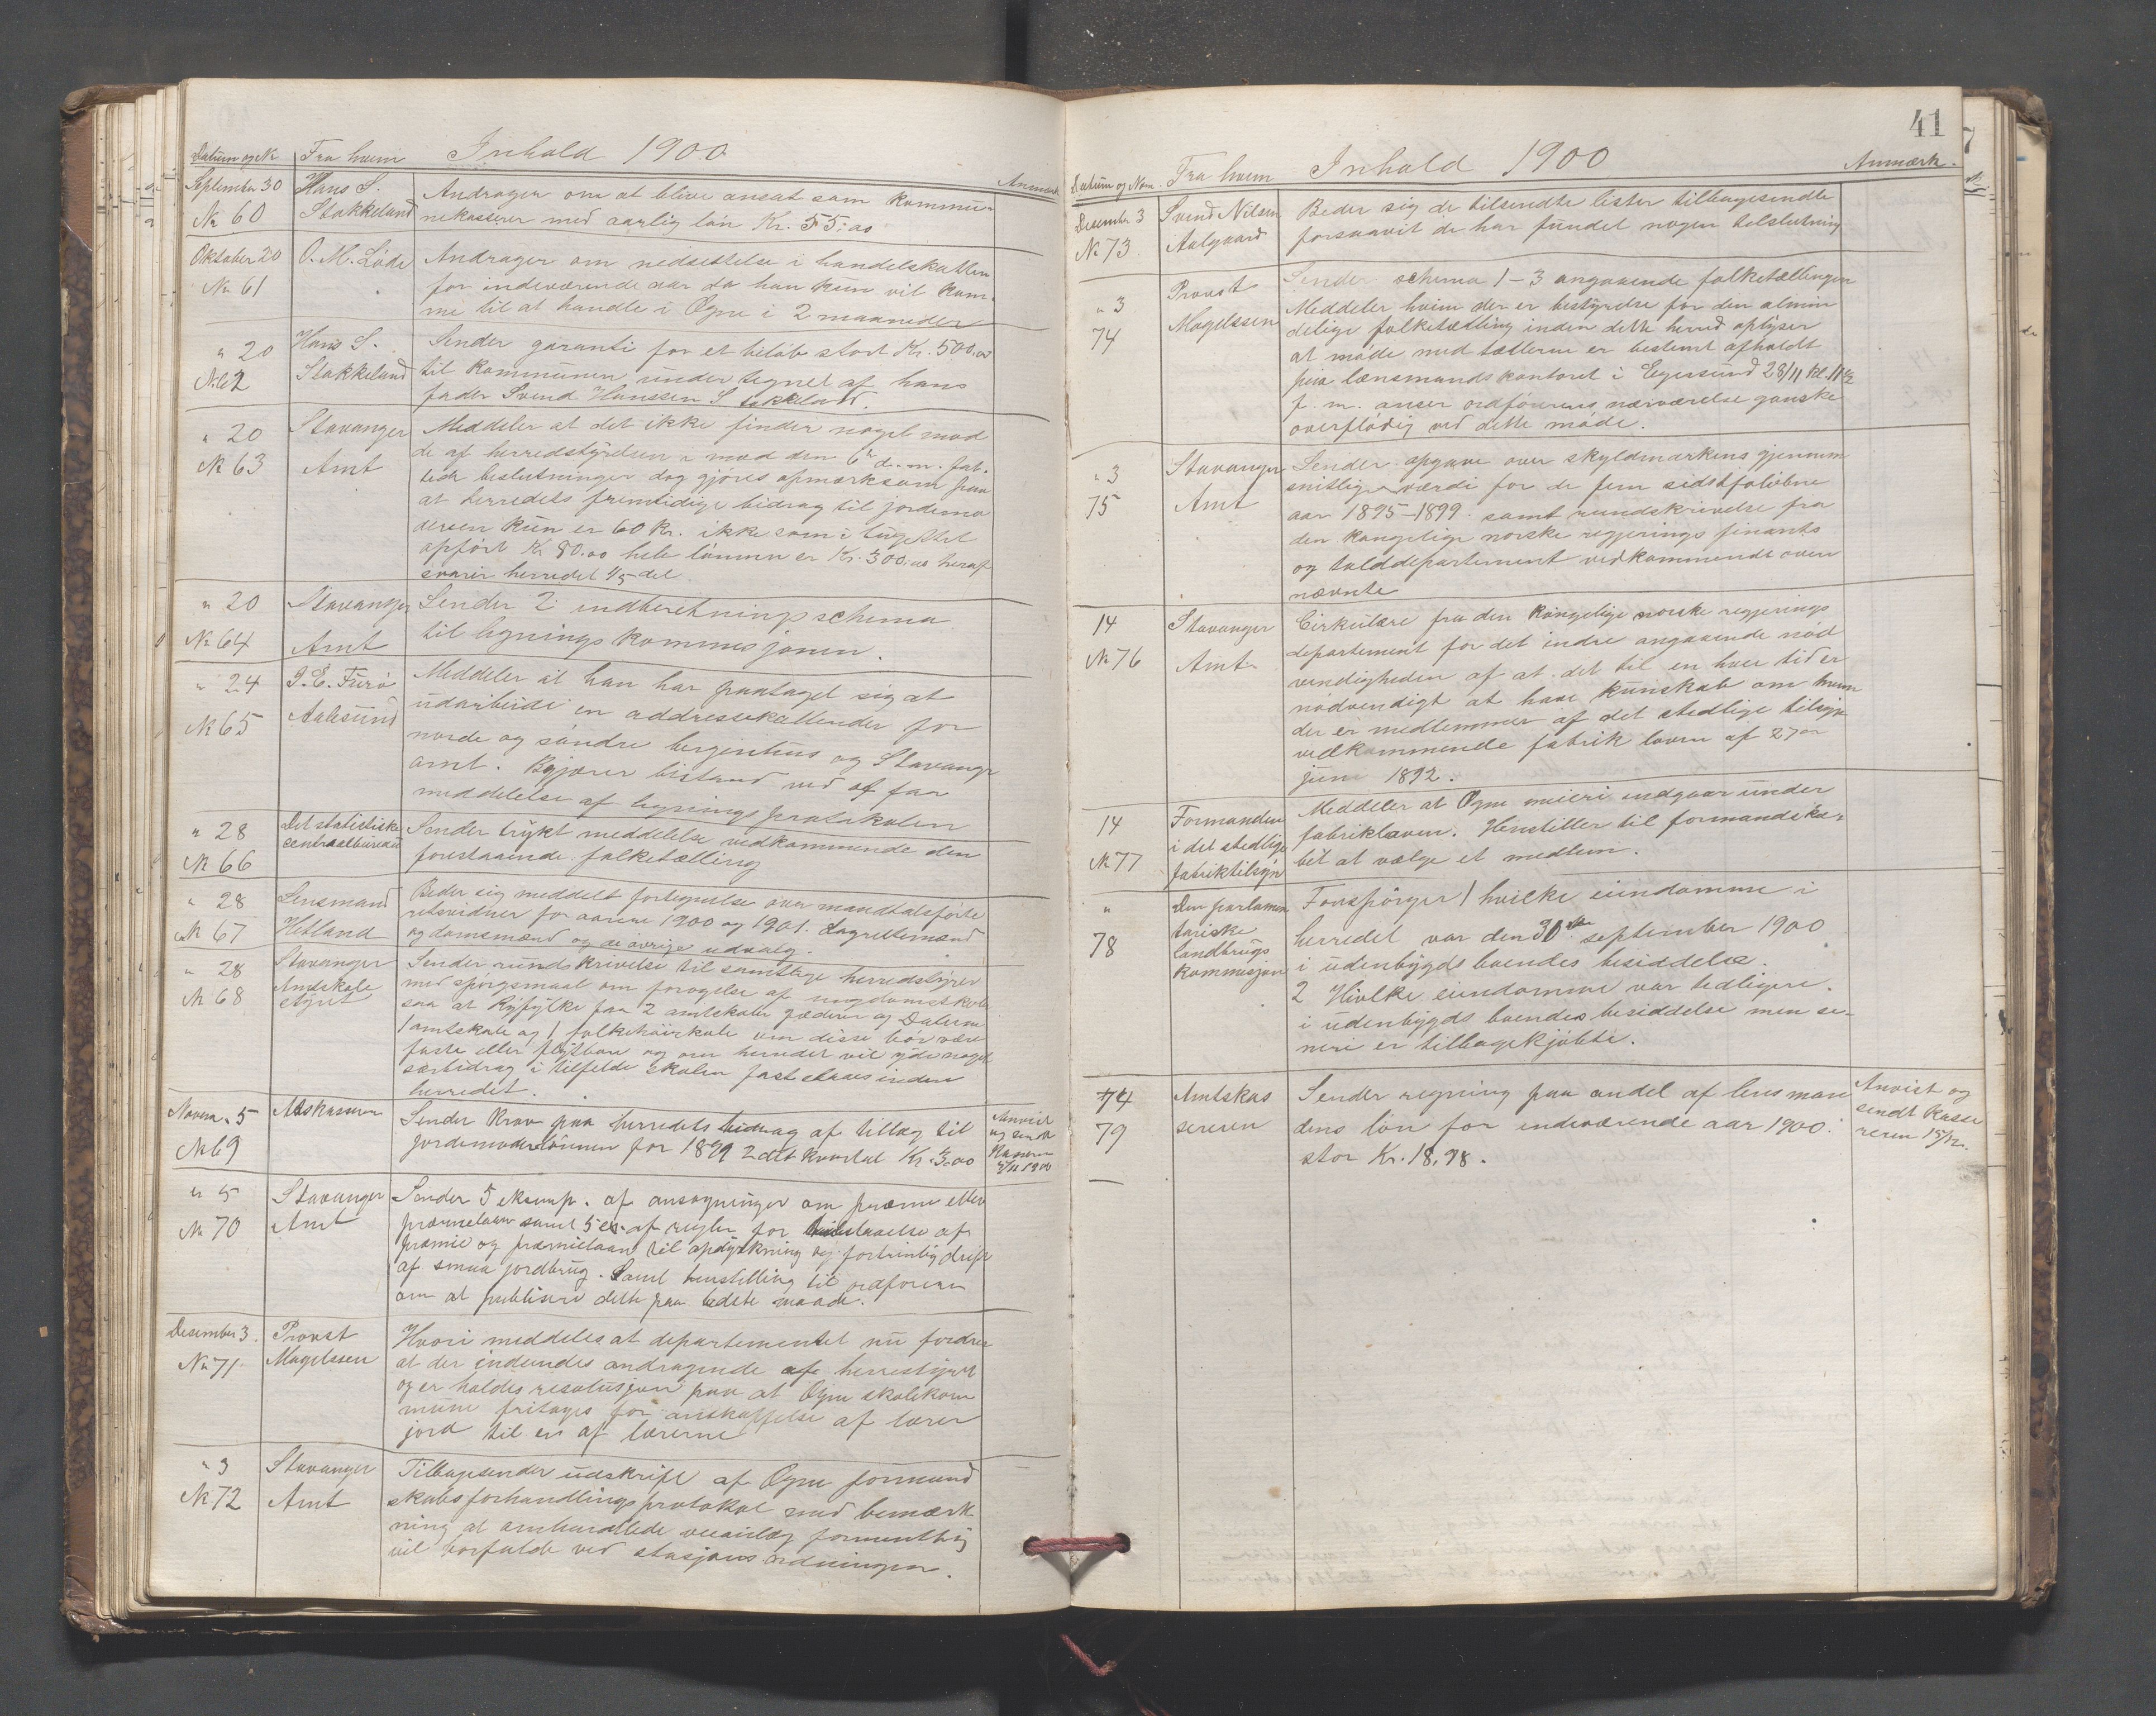 Datum og № Fra hvem Inhold 1900 Anmærk
September 30 Hans S. Andrager om at blive ansat som kommu-
№ 60 Stokkeland nekasserer med aarlig løn Kr. 55.00
Oktober 20 O. M. Löde Andrager om nedsettelse i handelskatten
№ 61 for indeværende aar da han kun vil kom-
me til at handle i Ogne i 2 maaneder
" 20 Hans S. Sender garanti for et beløb stort Kr. 500.00
№ 62 Stokkeland til kommunen undertegnet af hans
fader Svend Hanssen Stokkeland.
" 20 Stavanger Meddeler at det ikke finder noget mod
№ 63 Amt de af herredstyrelsen i mød den 6te d. m. fat-
tede beslutninger dog gjöres opmærksom paa
at herredets fremtidige bidrag til jordemo
deren kun er 60 Kr. ikke som i budgettet
opført Kr 80.00 hele lönnen er Kr. 300.00 heraf
svarer herredet 1/5 del
" 20 Stavanger Sender 2 indberetningsschema
№ 64 Amt til ligningskommisjonen.
" 24 J. E. Furö Meddeler at han har paataget sig at
№ 65 Aalesund udarbeide en addressekallender for
nordre og söndre bergenhus og Stavanger
amt. Begjærer bistand ved at faa
meddelelse af ligningsprotokolen
" 28 Det statistiske Sender trykt meddelelse vedkommende den
№ 66 centraalbureau forestaaende folketælling
" 28 Lensmand Beder sig meddelt fortegnelse over mandtalsförte
№ 67 Hetland retsvidner for aarene 1900 og 1901. Lagrettemænd
og domsmænd og de övrige udvalg.
" 28 Stavanger Sender rundskrivelse til samtlige herredstyrer
№ 68 Amtskole med spörgsmaal om forögelse af ungdomsskoler
styret saa at Ryfylke faar 2 amtskoler Jæderen og Dalerne
1 amtskole og 1 folkehöiskole om disse bör være
faste eller flytbare og om herredet vil yde noget
særbidrag i tilfelde skolen fast ettaves inden
herredet.
Novem. 5 Amtskasseren Sender krav paa herredets bidrag af tillæg til Anvist
№ 69 jordemoderlönnen for 1899 2det kvartal Kr. 3.00 og sendt
Kasseren
5/11 1900
" 5 Stavanger Sender 5 eksemp. af ansøgninger om præmie eller
№ 70 Amt præmielaan samt 5 ex. af regler for tilstaaelse af
præmie og præmielaan til opdyrkning og fortrinlig drift
af smaa jordbrug. Samt henstilling til ordføreren
om at publisere dette paa bedste maade.
Desember 3. Provst Hvori meddeles at departementet nu fordrer
№ 71 Magelssen at der indsendes andragende af herrestyret
og er holdes resolusjon paa at Ogne skolekom
mune fritages for anskaffelse af lærer
jord til en af lærerne
" 3 Stavanger Tilbagesender udskrift af Ogne formand
№ 72 Amt skabsforhandlingsprotokol med bemærk
ning at omhandlede veianlæg formentlig
vil bortfalde ved stasjons ordningen.
41
Datum og Nom. Fra hvem Inhold 1900 Anmærk.
Desember 3 Svend Nilsen Beder sig de tilsendte lister tilbagesendte
№ 73 Aalgaard forsaavit de har fundet nogen tilslutning
" 3 Provst Sender schema 1-3 angaaende folketællingen
74 Magelssen Meddeler hvem der er bestyrelse for den almin
delige folketælling inden dette herred oplyser
at möde med tællerne er bestemt afholdt
paa lænsmandskontoret i Egersund 28/11 kl. 11 1/2
f. m. anser ordförerens nærværelse ganske
overflödig ved dette möde.
" 3 Stavanger Sender opgave over skyldmarkens gjennem
75 Amt snitlige værdi for de fem sidstforløbne
aar 1895-1899. samt rundskrivelse fra
den kongelige norske regjerings finants
og tolddepartement vedkommende oven
nævnte
14 Stavanger Cirkulære fra den kongelige norske regjerings
№ 76 Amt departement for det indre angaaende nöd
vendigheden af at det til en hver tid er
nødvendigt at have kunskab om hvem
der er medlemmer af det stedlige tilsyn
vedkommende fabrik loven af 27de
juni 1892.
14 Formanden Meddeler at Ogne meieri indgaar under
№ 77 i det stedlige fabrikloven. Henstiller til formandska-
fabriktilsyn bet at vælge et medlem.
" Den parlamen Forespørger 1 hvilke eiendomme i
78 tariske herredet var den 30te september 1900
landbrugs i udenbygds boendes besiddelse.
kommisjon 2 Hvilke eiendomme var tidligere
i udenbygds boendes besiddelse men se-
nere er tilbagekjøbte.
14 Amtskas Sender regning paa andel af lensman Anvist og
79 sereren dens løn for indeværende aar 1900. sendt kasse
stor Kr. 18,98. reren 15/12.